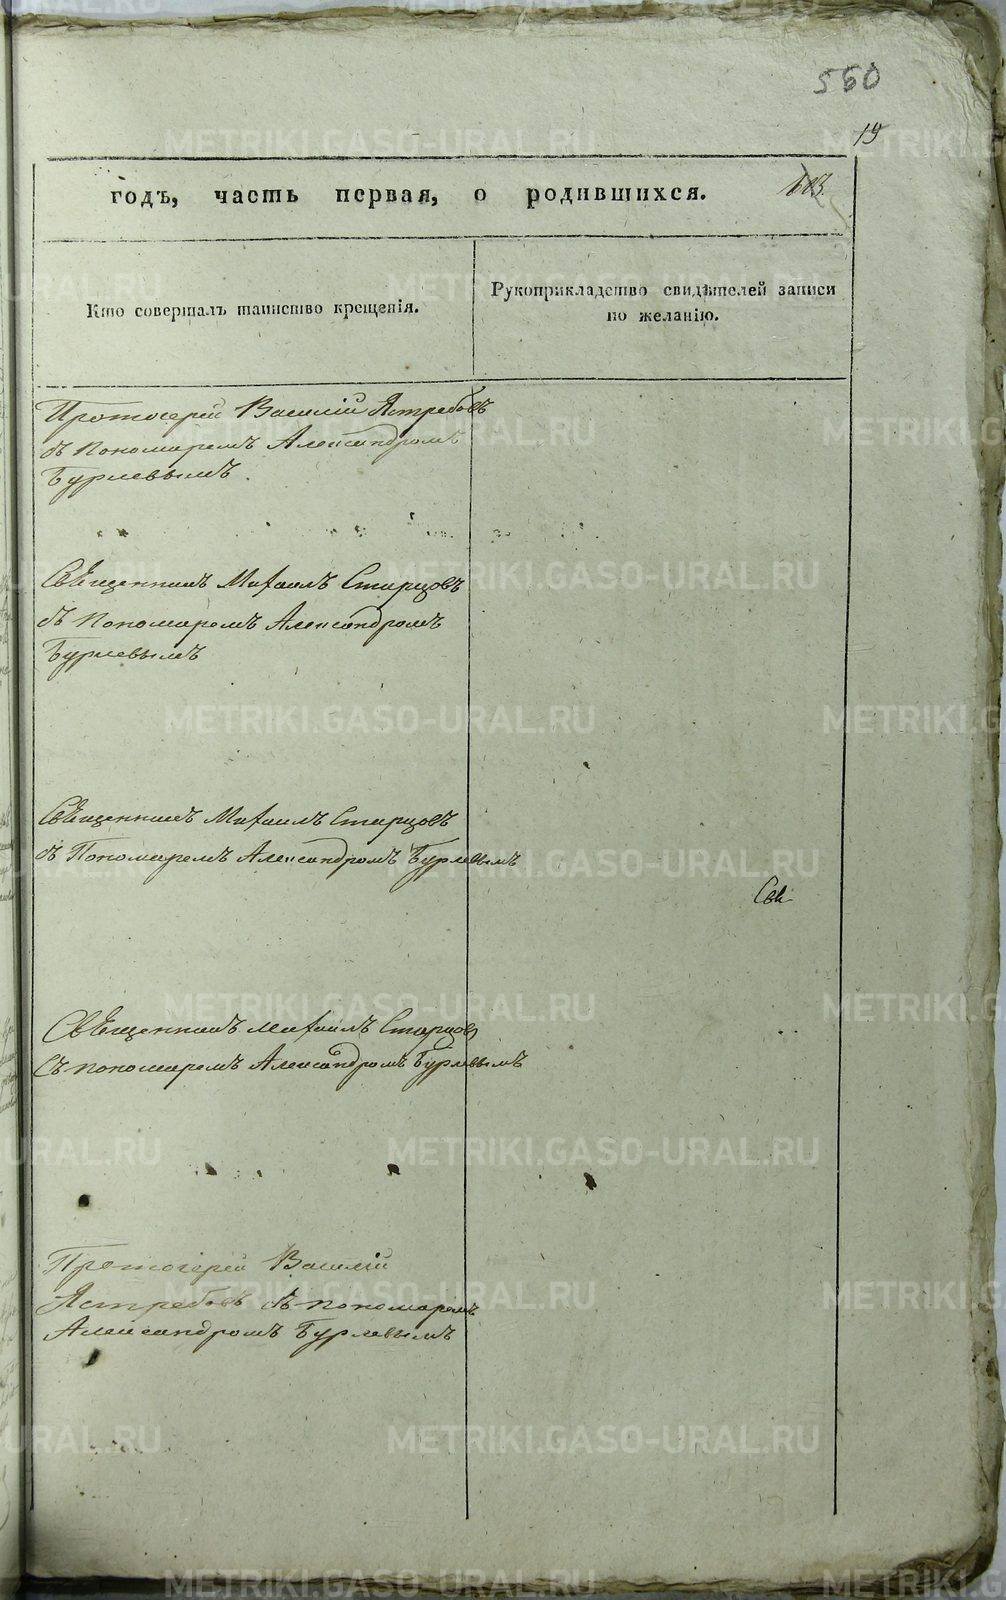 550
19
годъ, часть первая, о родившихся.
Кто совершалъ таинство крещенія.
Рукоприкладство свидѣтелей записи
по желанію.
Протоіерей Василій Ястребовъ
съ Пономаремъ Александромъ
Бурлевымъ.
Священникъ Михаилъ Старцовъ
съ Пономаремъ Александромъ
Бурлевымъ
Священникъ Михаилъ Старцовъ
съ Пономаремъ Александромъ Бурлевымъ
Свя
Священникъ Михаилъ Старцовъ
Съ пономаремъ Александромъ Бурлевымъ
Протоіерей Василій
Ястребовъ съ пономаремъ
Александромъ Бурлевымъ
METRIKI.GASO-URAL.RU